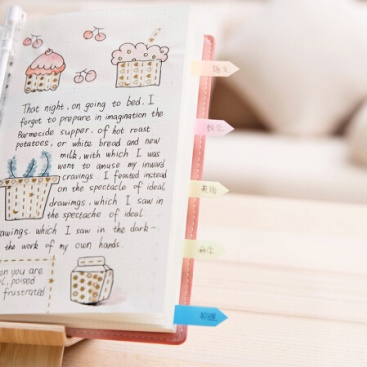 That night, on going to bed, I
forgot to prepare in imagination the
Barmecide supper, of hot roast
potatoes, or white bread and new
milk, with which I was
wont to amuse my inward
cravings. I feasted instead
on the spectacle of ideal
drawings, which I saw in
the spectacle of ideal
awings, which I saw in the dark-
the work of my own hands.
en you are
l, poised
frustrated
语文
数学
英语
物理